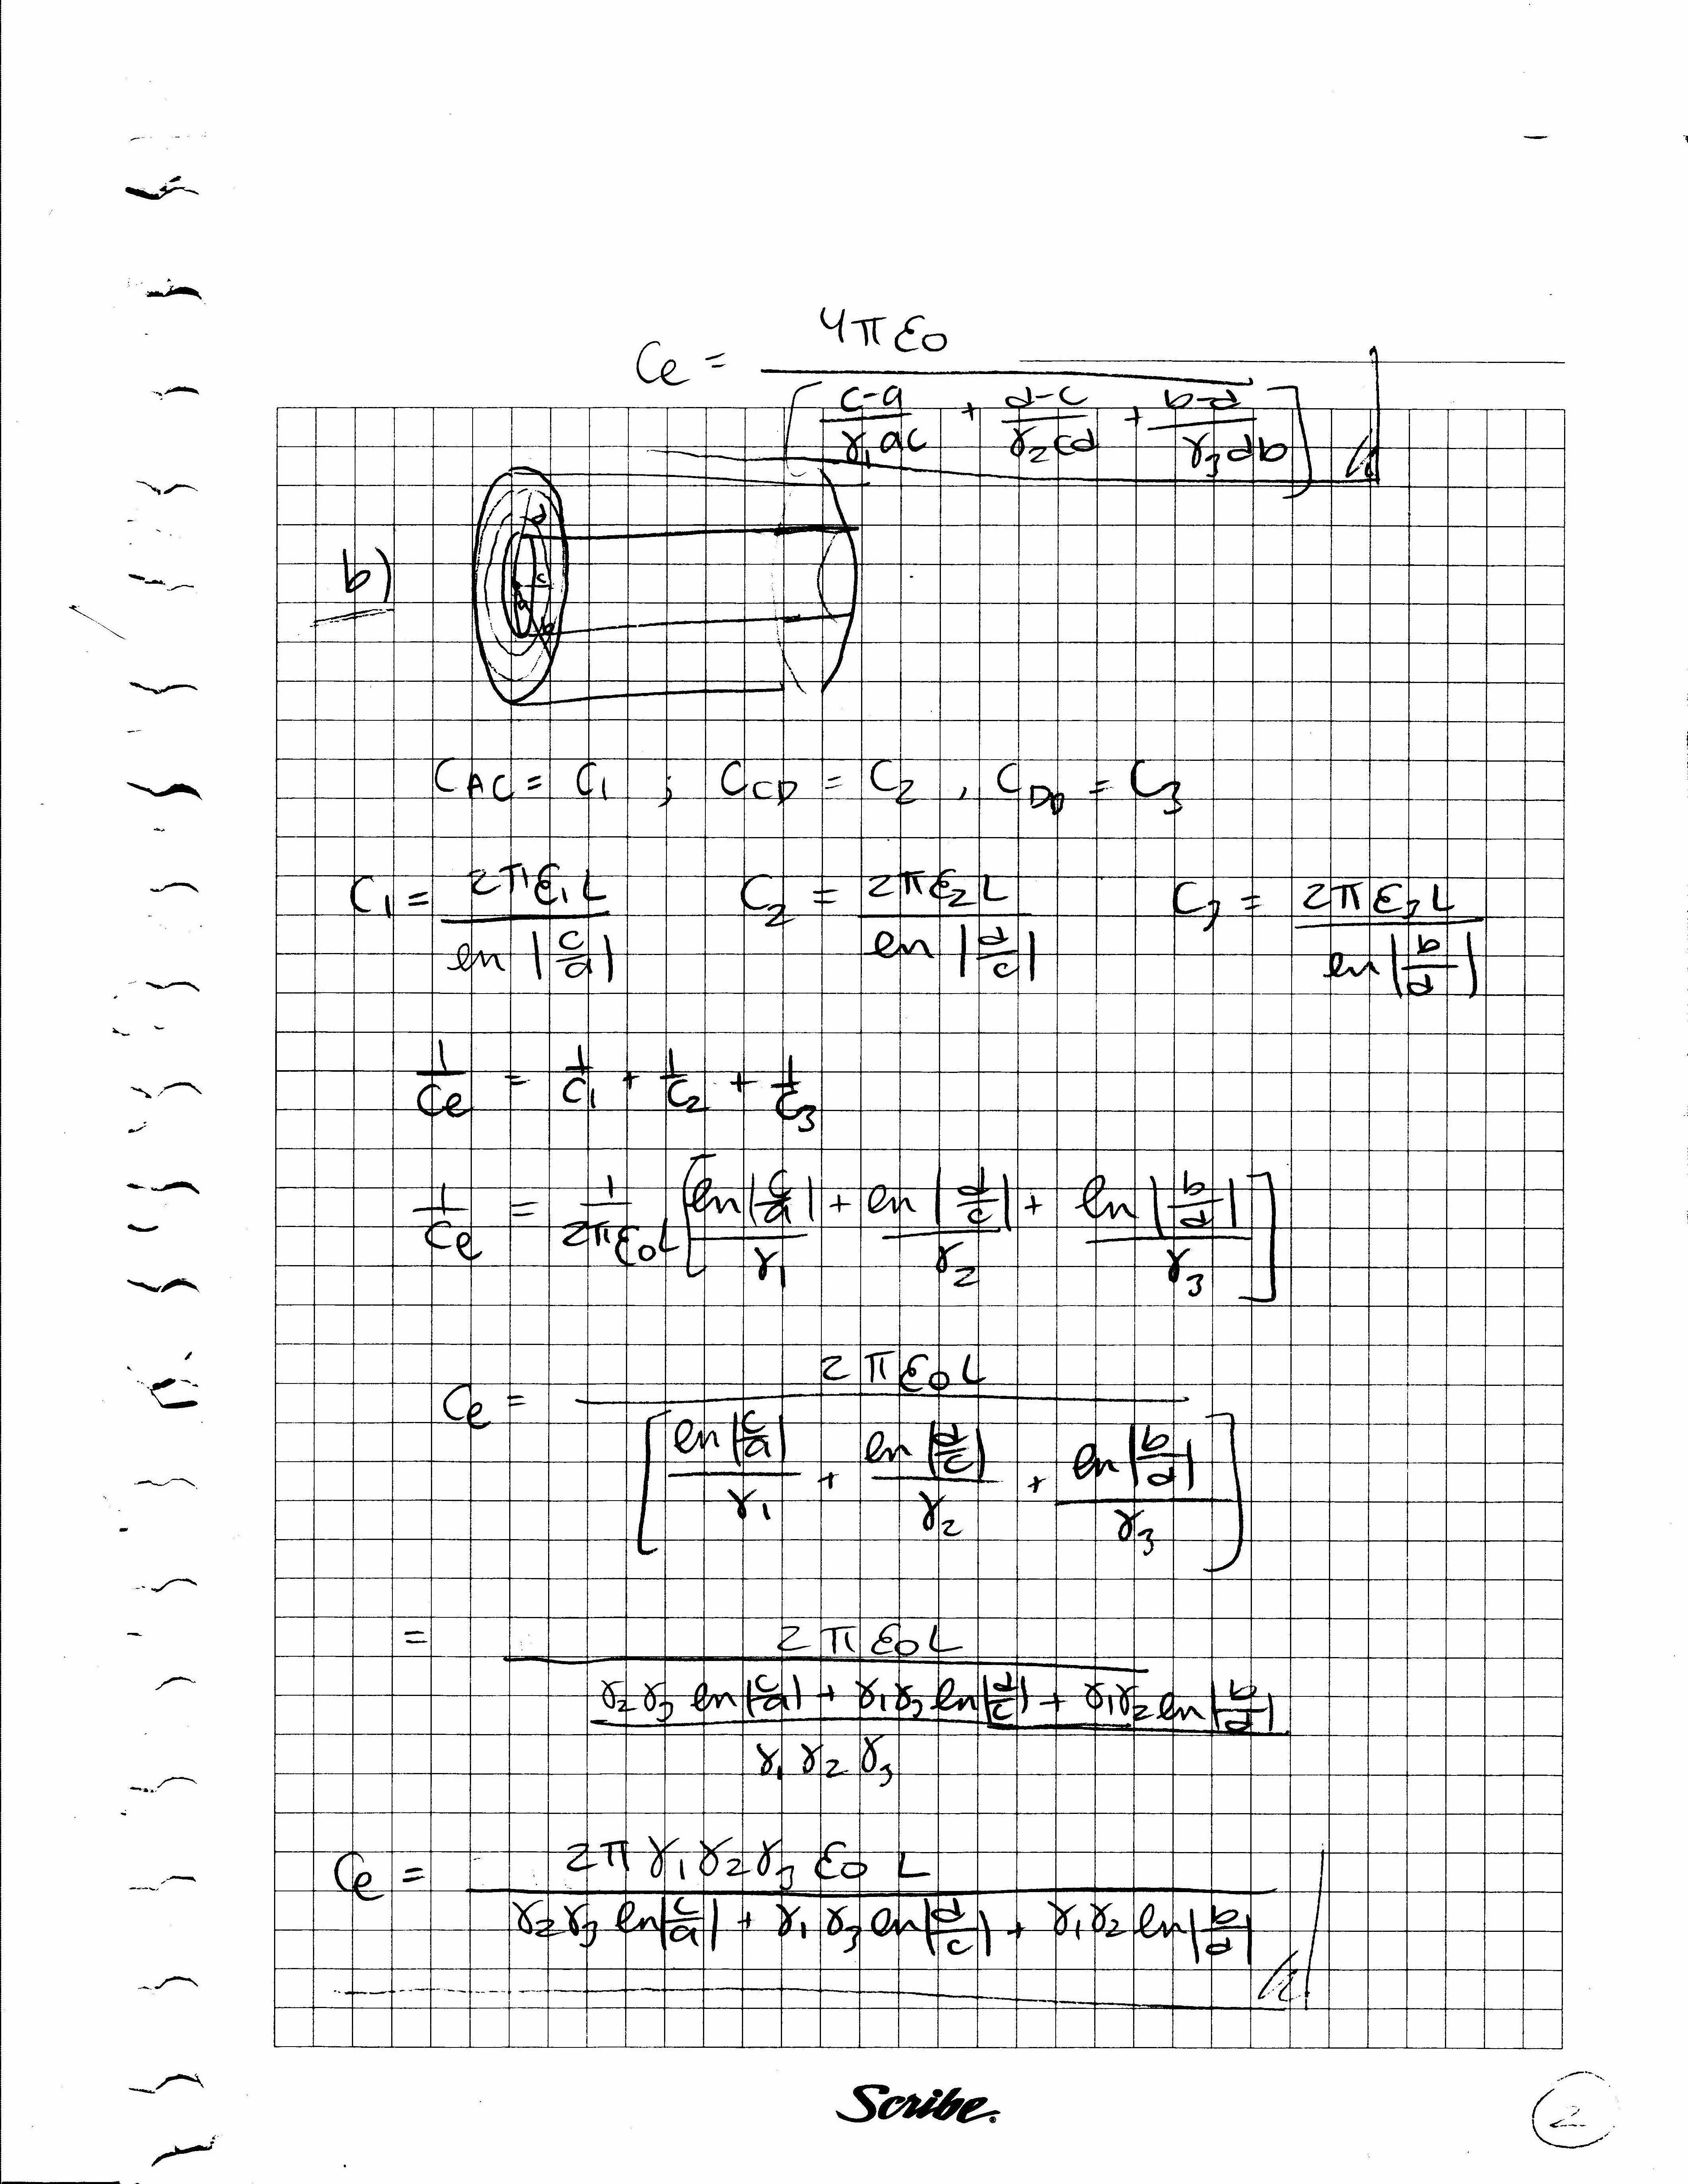 Ce = 4πε0 / [ (c-a)/(γ1 ac) + (d-c)/(γ2 cd) + (b-d)/(γ3 db) ]
b)
d
c
a
b
CAC = C1 ; CCD = C2 , CDB = C3
C1 = 2πε1L / ln|c/a|   C2 = 2πε2L / ln|d/c|   C3 = 2πε3L / ln|b/d|
1/Ce = 1/C1 + 1/C2 + 1/C3
1/Ce = 1/(2πε0L) [ ln|c/a|/γ1 + ln|d/c|/γ2 + ln|b/d|/γ3 ]
Ce = 2πε0L / [ ln|c/a|/γ1 + ln|d/c|/γ2 + ln|b/d|/γ3 ]
= 2πε0L / ( (γ2γ3 ln|c/a| + γ1γ3 ln|d/c| + γ1γ2 ln|b/d|) / (γ1γ2γ3) )
Ce = 2πγ1γ2γ3ε0L / ( γ2γ3 ln|c/a| + γ1γ3 ln|d/c| + γ1γ2 ln|b/d| )
Scribe.
2